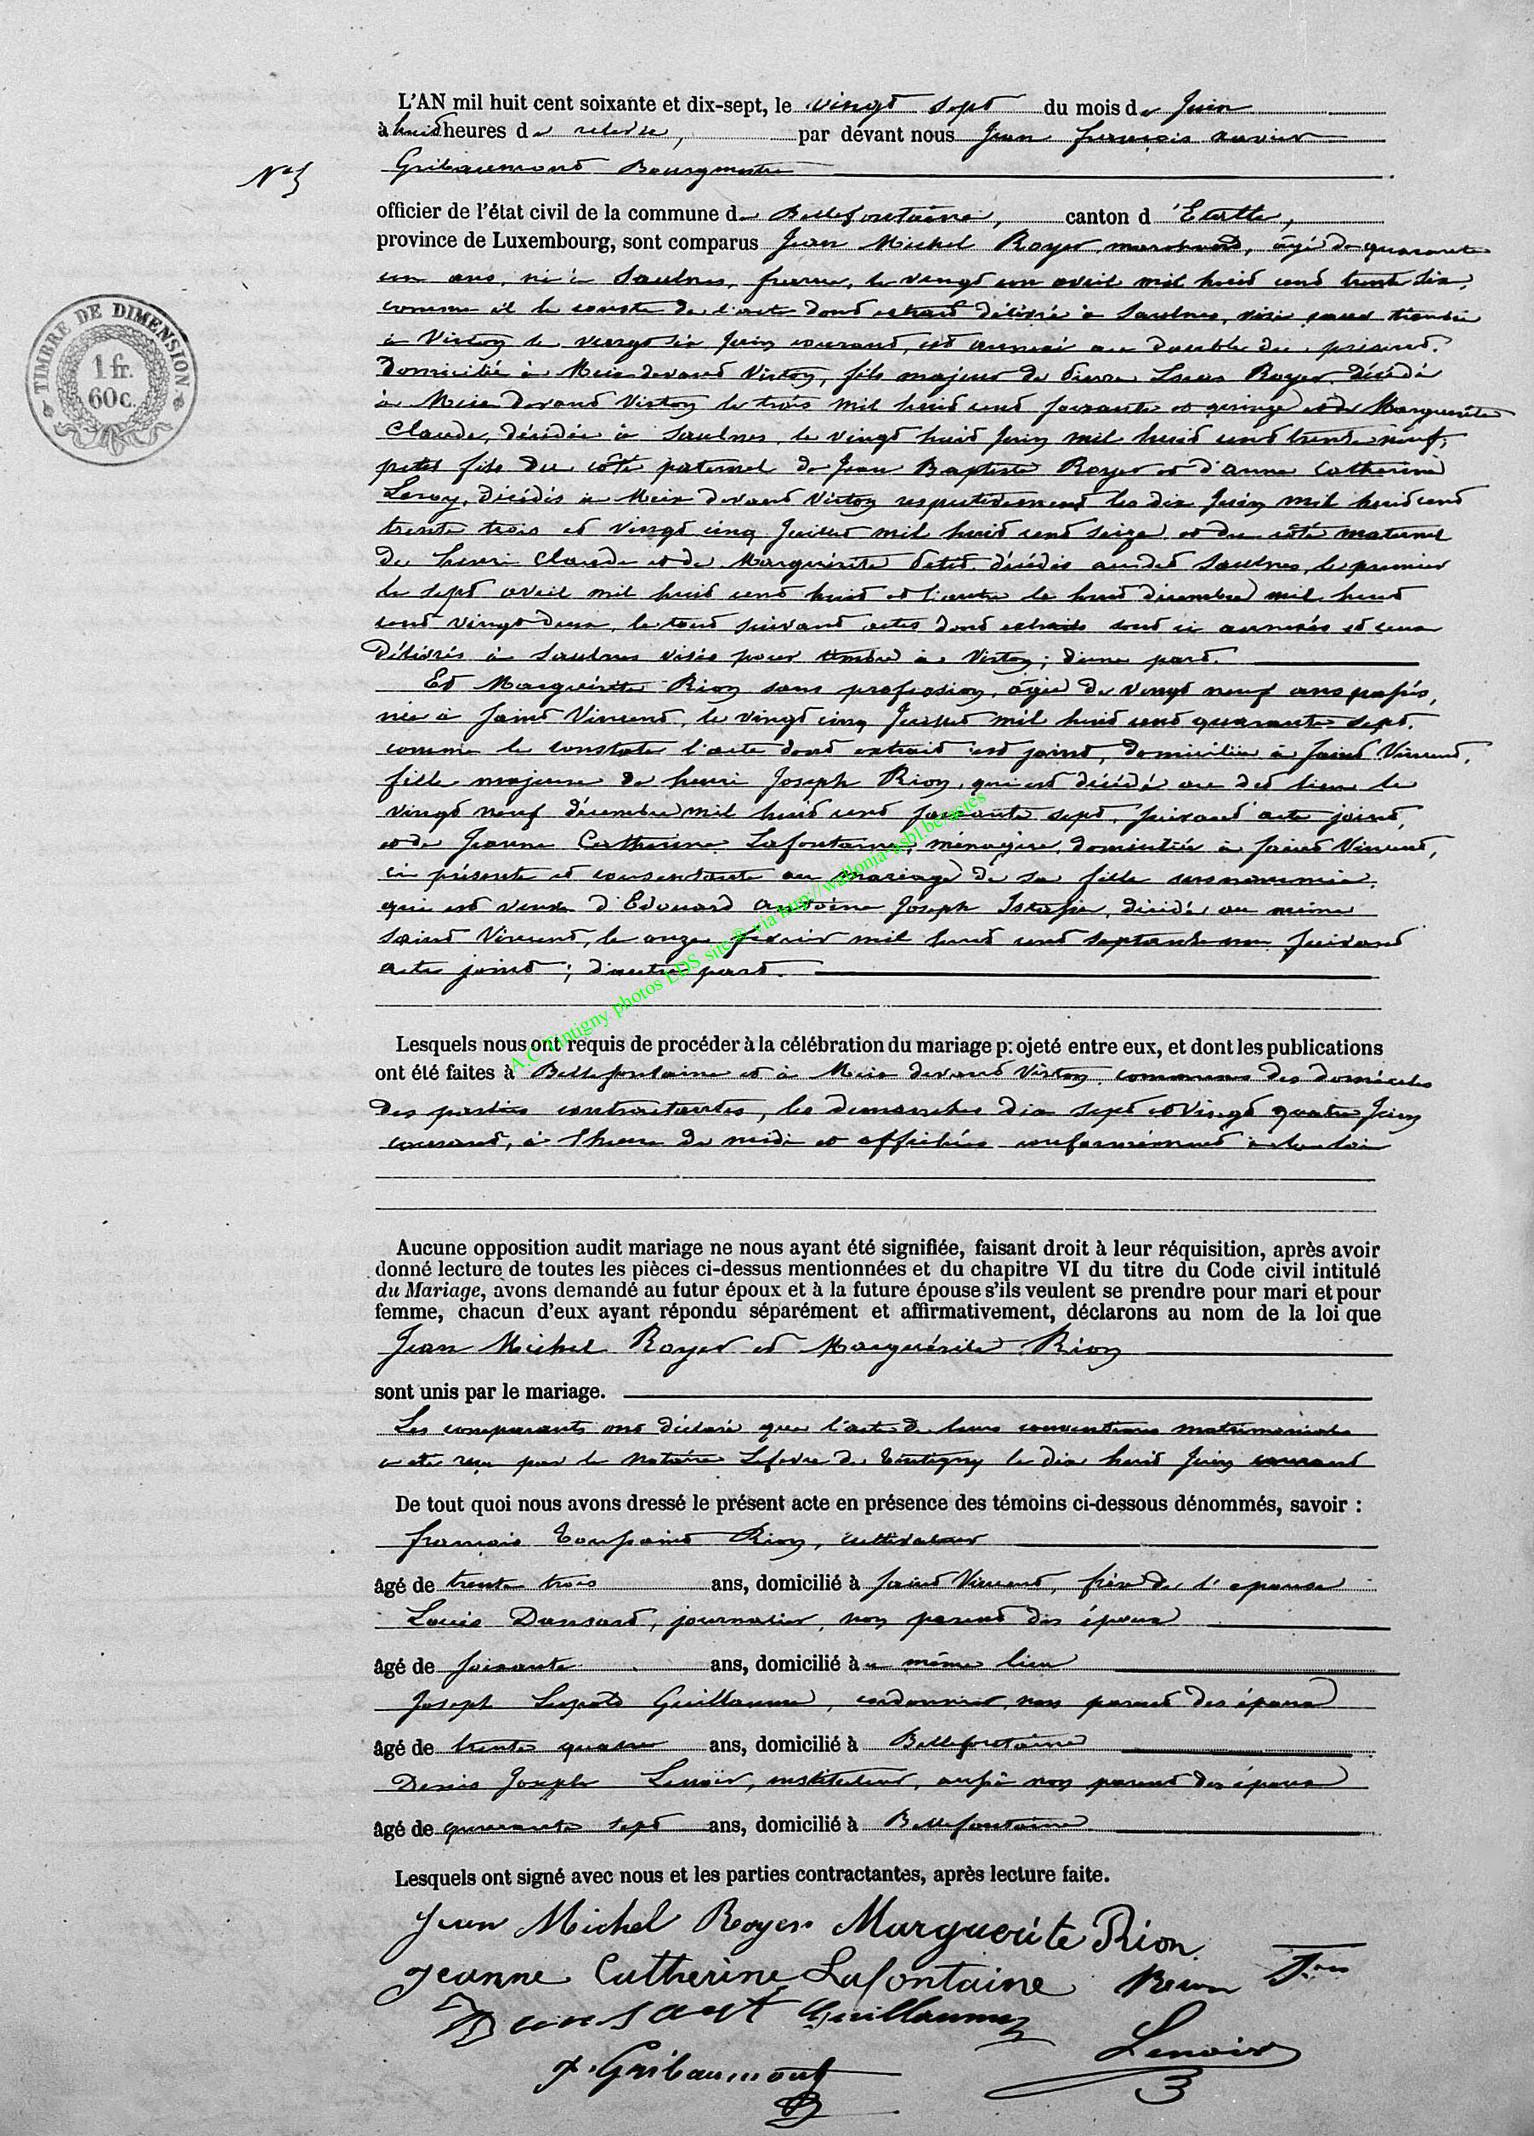 L'AN mil huit cent soixante et dix-sept, le vingt sept du mois de Juin
à huit heures de relevée, par devant nous Jean françois xavier
Gribaumont Bourgmestre
N° 5
officier de l'état civil de la commune de Bellefontaine, canton d'Etalle,
province de Luxembourg, sont comparus Jean Michel Royer, marchand, âgé de quarante
un ans, né à Saulnes, france, le vingt un avril mil huit cent trente six,
comme il le conste de l'acte dont extrait délivré à Saulnes, visé pour timbre
à Virton le vingt six Juin courant, est annexé au double du présent.
Domicilié à Meix devant Virton, fils majeur de Pierre Lucas Royer, décédé
à Meix devant Virton le trois mil huit cent soixante et quinze et de Marguerite
Claude, décédée à Saulnes, le vingt huit Juin mil huit cent trente neuf,
petit fils du côté paternel de Jean Baptiste Royer et d'anne Catherine
Leroy, décédés à Meix devant Virton respectivement les dix Juin mil huit cent
trente trois et vingt cinq Juillet mil huit cent seize et du côté maternel
de henri Claude et de Marguerite Petit, décédés audit Saulnes, le premier
le sept avril mil huit cent huit et l'autre le huit décembre mil huit
cent vingt deux, le tout suivant actes dont extraits sont ci annexés et ceux
délivrés à Saulnes visés pour timbre à Virton; d'une part.
Et Marguérite Rion sans profession, âgée de vingt neuf ans passés,
née à Saint Vincent, le vingt cinq Juillet mil huit cent quarante sept.
comme le constate l'acte dont extrait est joint, domiciliée à Saint Vincent,
fille majeure de henri Joseph Rion, qui est décédé au dit lieu le
vingt neuf décembre mil huit cent soixante sept, suivant acte joint,
et de Jeanne Catherine Lafontaine, ménagère, domiciliée à Saint Vincent,
ci présente et consentante au mariage de sa fille susnommée,
qui est veuve d'Edouard Antoine Joseph décédé au même
Saint Vincent, le onze février mil huit cent septante un suivant
acte joint; d'autre part.
Lesquels nous ont requis de procéder à la célébration du mariage projeté entre eux, et dont les publications
ont été faites à Bellefontaine et à Meix devant Virton, communes des domiciles
des parties contractantes, les dimanches dix sept et vingt quatre Juin
courant, à l'heure de midi et affichées conformément à la loi
Aucune opposition audit mariage ne nous ayant été signifiée, faisant droit à leur réquisition, après avoir
donné lecture de toutes les pièces ci-dessus mentionnées et du chapitre VI du titre du Code civil intitulé
du Mariage, avons demandé au futur époux et à la future épouse s'ils veulent se prendre pour mari et pour
femme, chacun d'eux ayant répondu séparément et affirmativement, déclarons au nom de la loi que
Jean Michel Royer et Marguérite Rion
sont unis par le mariage.
Les comparants ont déclaré que l'acte de leurs conventions matrimoniales
a été reçu par le Notaire Lefevre de Tintigny le dix huit Juin courant
De tout quoi nous avons dressé le présent acte en présence des témoins ci-dessous dénommés, savoir :
françois Toussaint Rion, cultivateur
âgé de trente trois ans, domicilié à Saint Vincent, frère de l'épouse
Louis Dansart, journalier, non parent des époux
âgé de soixante ans, domicilié à u même lieu
Joseph Léopold Guillaume, cordonnier, non parent des époux
âgé de trente quatre ans, domicilié à Bellefontaine
Denis Joseph Lenoir, instituteur, aussi non parent des époux
âgé de quarante sept ans, domicilié à Bellefontaine
Lesquels ont signé avec nous et les parties contractantes, après lecture faite.
Jean Michel Royer Marguerite Rion
Jeanne Catherine Lafontaine Rion
Dansart Guillaume
Lenoir
Gribaumont
TIMBRE DE DIMENSION
1 fr.
60 c.
A.C Tintigny photos LDS site ® via http://wallonia-asbl.be/actes